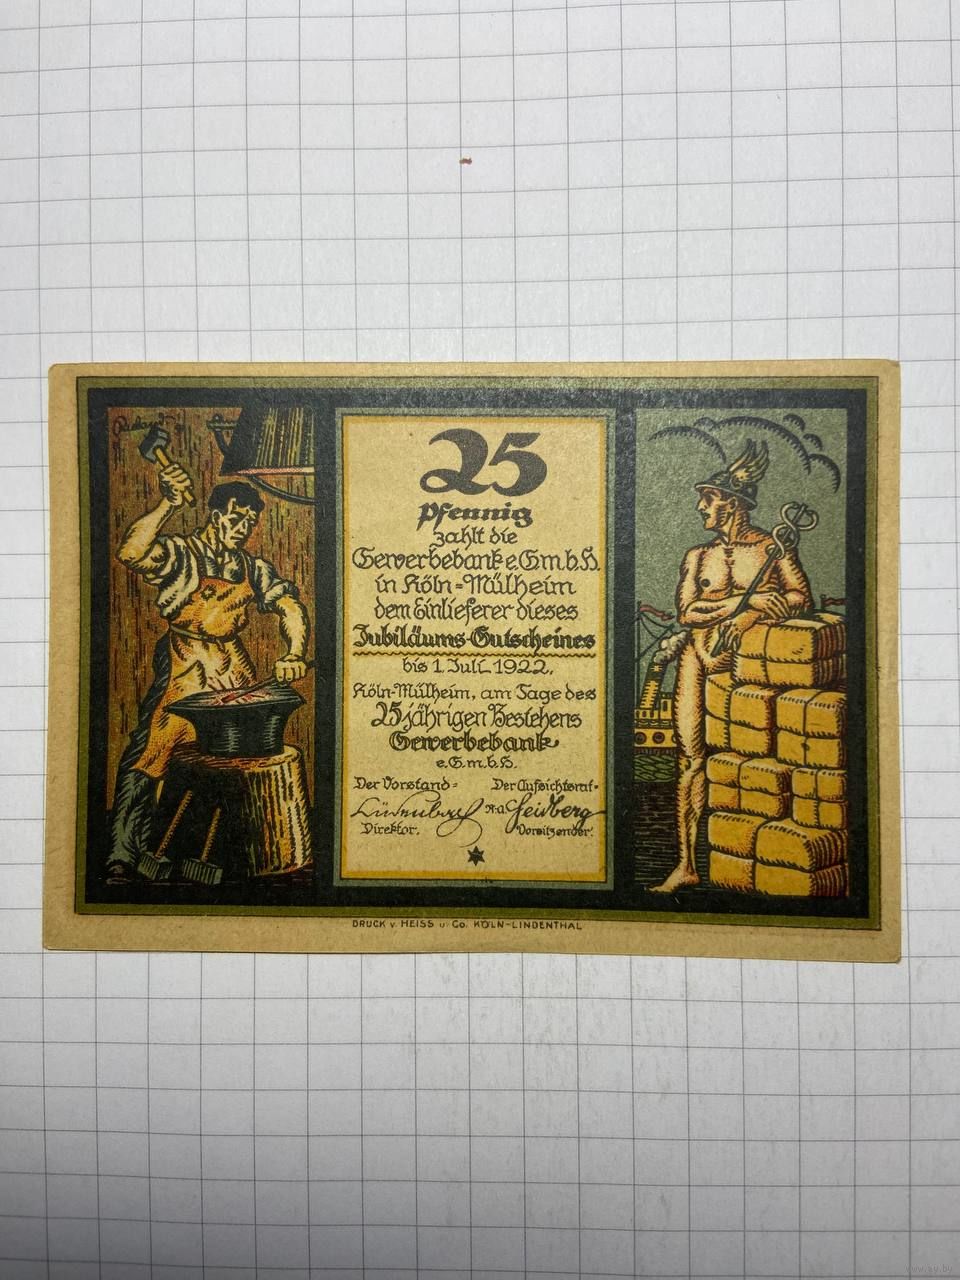 25
Pfennig
zahlt die
Gewerbebank e.G.m.b.H.
in Köln-Mülheim
dem Einlieferer dieses
Jubiläums-Gutscheines
bis 1. Juli 1922.
Köln-Mülheim, am Tage des
25 jährigen Bestehens
Gewerbebank
e.G.m.b.H.
Der Vorstand: Der Aufsichtsrat:
R.A.
Direktor. Vorsitzender.
DRUCK v. HEISS u. Co. KÖLN-LINDENTHAL
www.ay.by